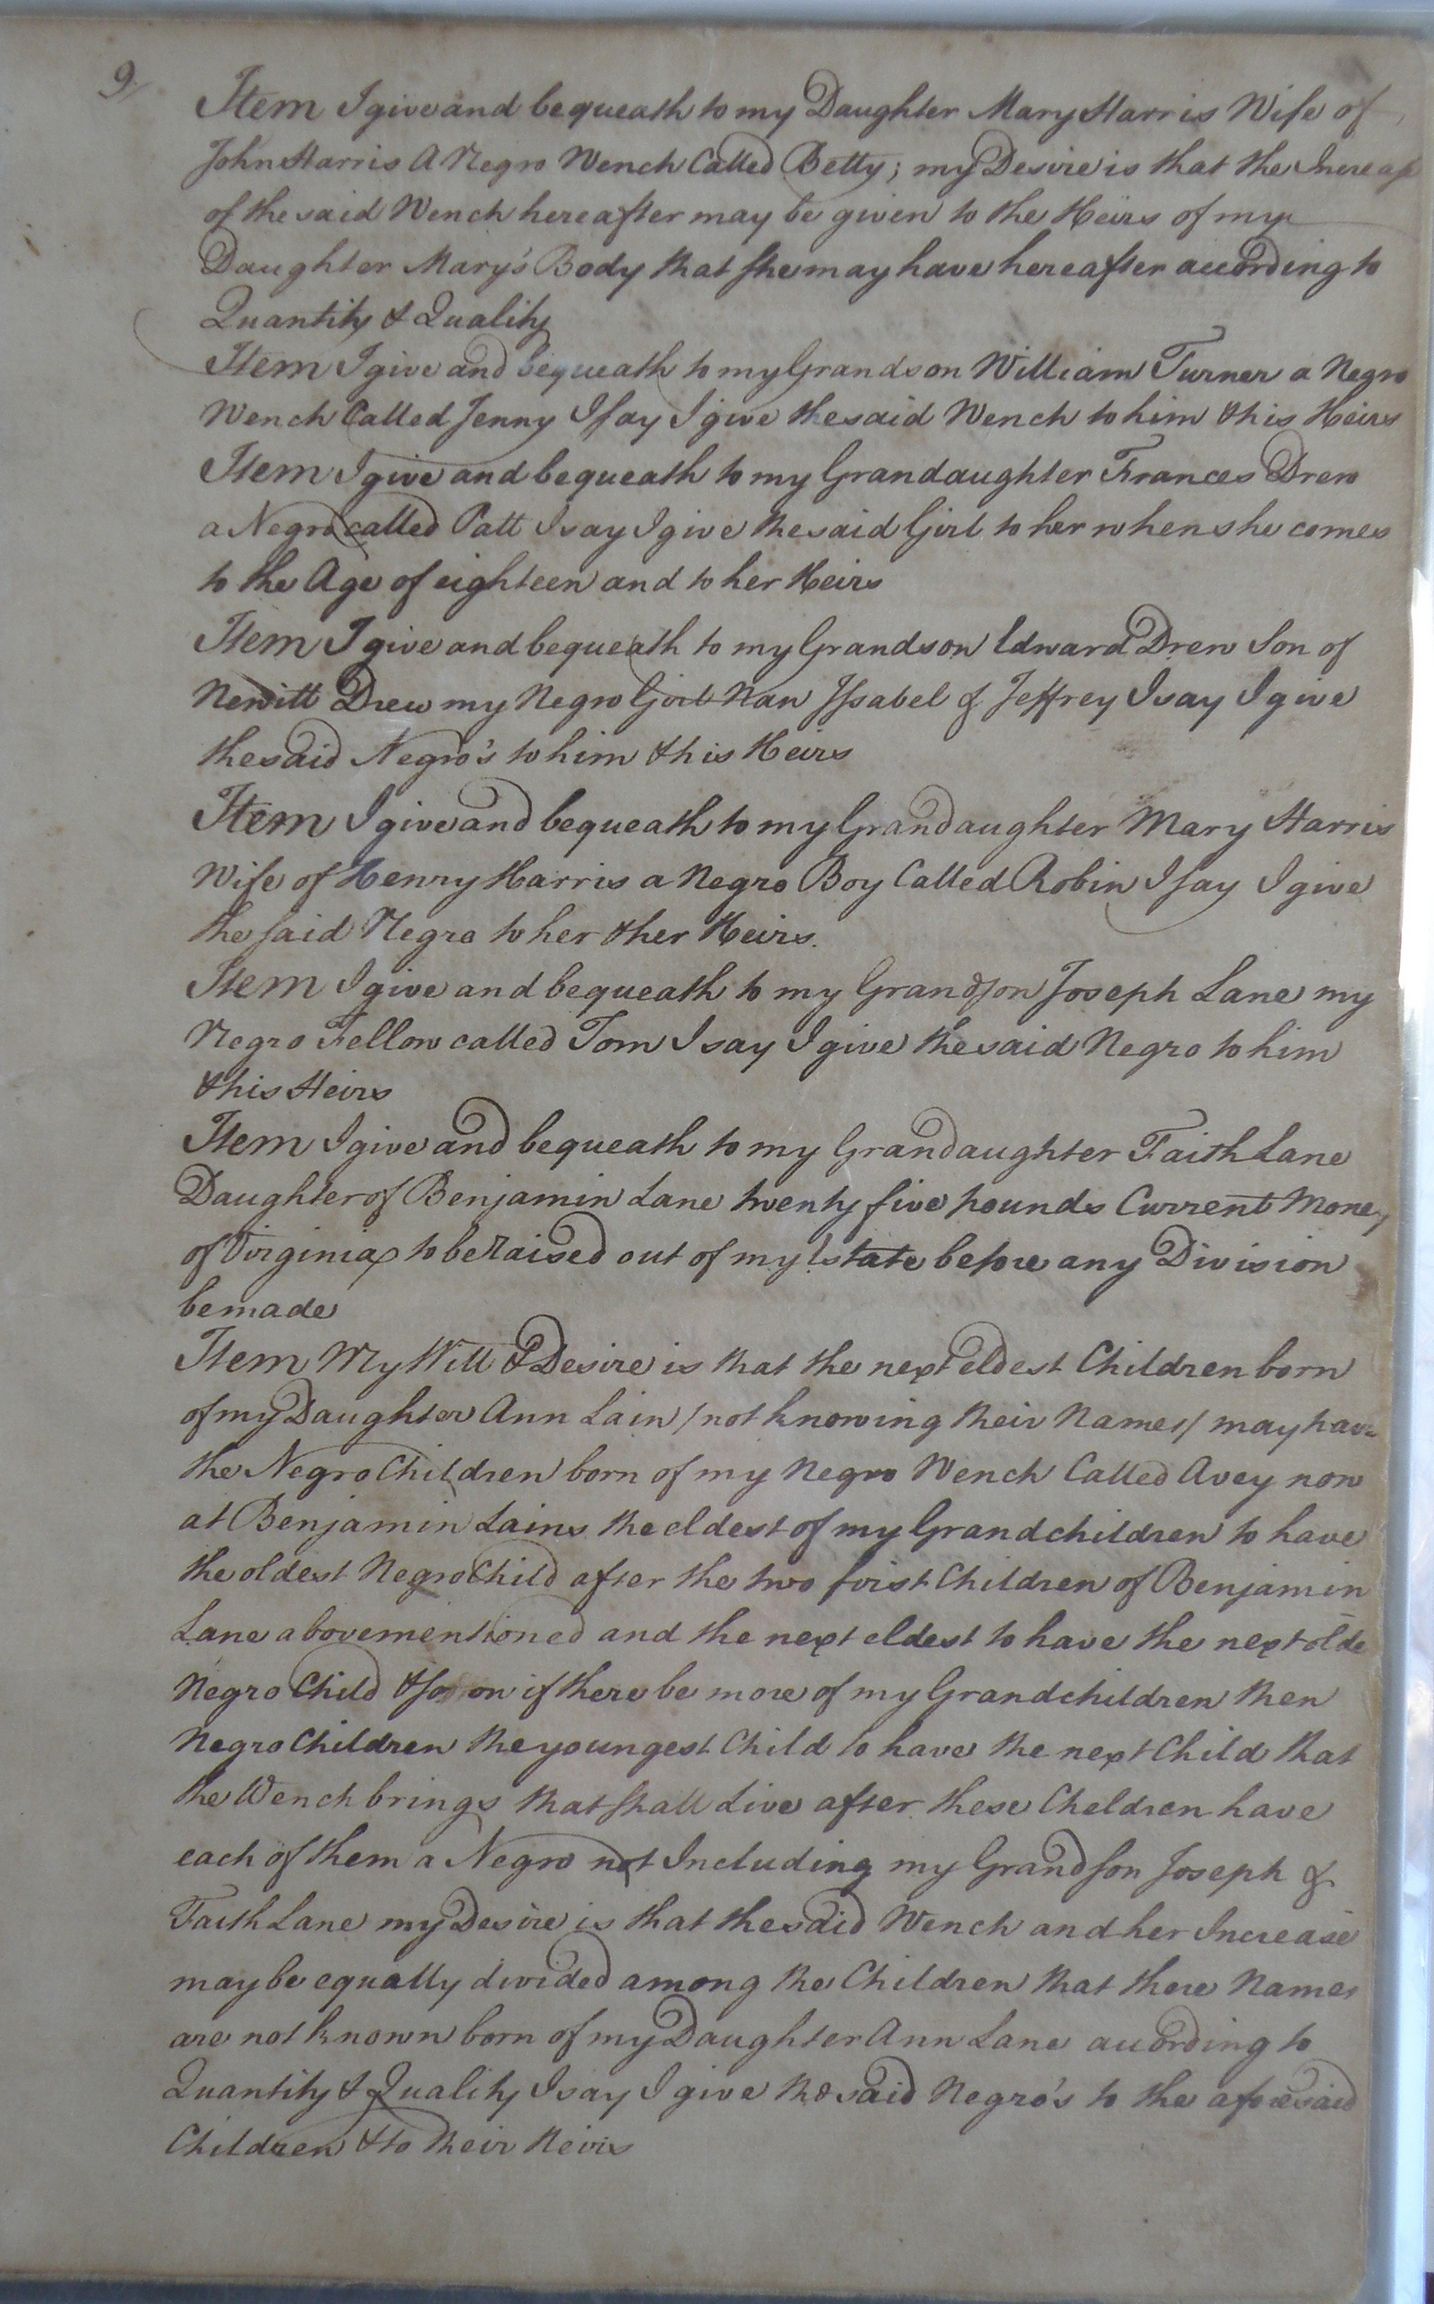 9/
Item I give and bequeath to my Daughter Mary Harris Wife of
John Harris A Negro Wench Called Betty; my Desire is that the Increase
of the said Wench hereafter may be given to the Heirs of my
Daughter Mary's Body that she may have hereafter according to
Quantity & Quality
Item I give and bequeath to my Grandson William Turner a Negro
Wench Called Jenny I say I give the said Wench to him & his Heirs
Item I give and bequeath to my Grandaughter Frances Drew
a Negro called Patt I say I give the said Girl to her when she comes
to the Age of eighteen and to her Heirs
Item I give and bequeath to my Grandson Edward Drew Son of
Newitt Drew my Negro Girl Nan Issabel & Jeffrey I say I give
the said Negro's to him & his Heirs
Item I give and bequeath to my Grandaughter Mary Harris
Wife of Henry Harris a Negro Boy Called Robin I say I give
the said Negro to her & her Heirs.
Item I give and bequeath to my Grandson Joseph Lane my
Negro Fellow called Tom I say I give the said Negro to him
& his Heirs
Item I give and bequeath to my Grandaughter Faith Lane
Daughter of Benjamin Lane twenty five pounds Current Money
of Virginia to be Raised out of my Estate before any Division
be made
Item My Will & Desire is that the next eldest Children born
of my Daughter Ann Lain /not knowing their Names/ may have
the Negro Children born of my Negro Wench Called Avey now
at Benjamin Lains the eldest of my Grandchildren to have
the oldest Negro Child after the two first Children of Benjamin
Lane abovementioned and the next eldest to have the next olde
Negro Child & so on if there be more of my Grandchildren then
Negro Children the youngest Child to have the next Child that
the Wench brings that shall Live after these Cheldren have
each of them a Negro not Including my Grandson Joseph &
Faith Lane my Desire is that the said Wench and her Increase
may be equally divided among the Children that there Names
are not known born of my Daughter Ann Lane according to
Quantity & Quality I say I give the said Negro's to the aforesaid
Children & to their Heirs